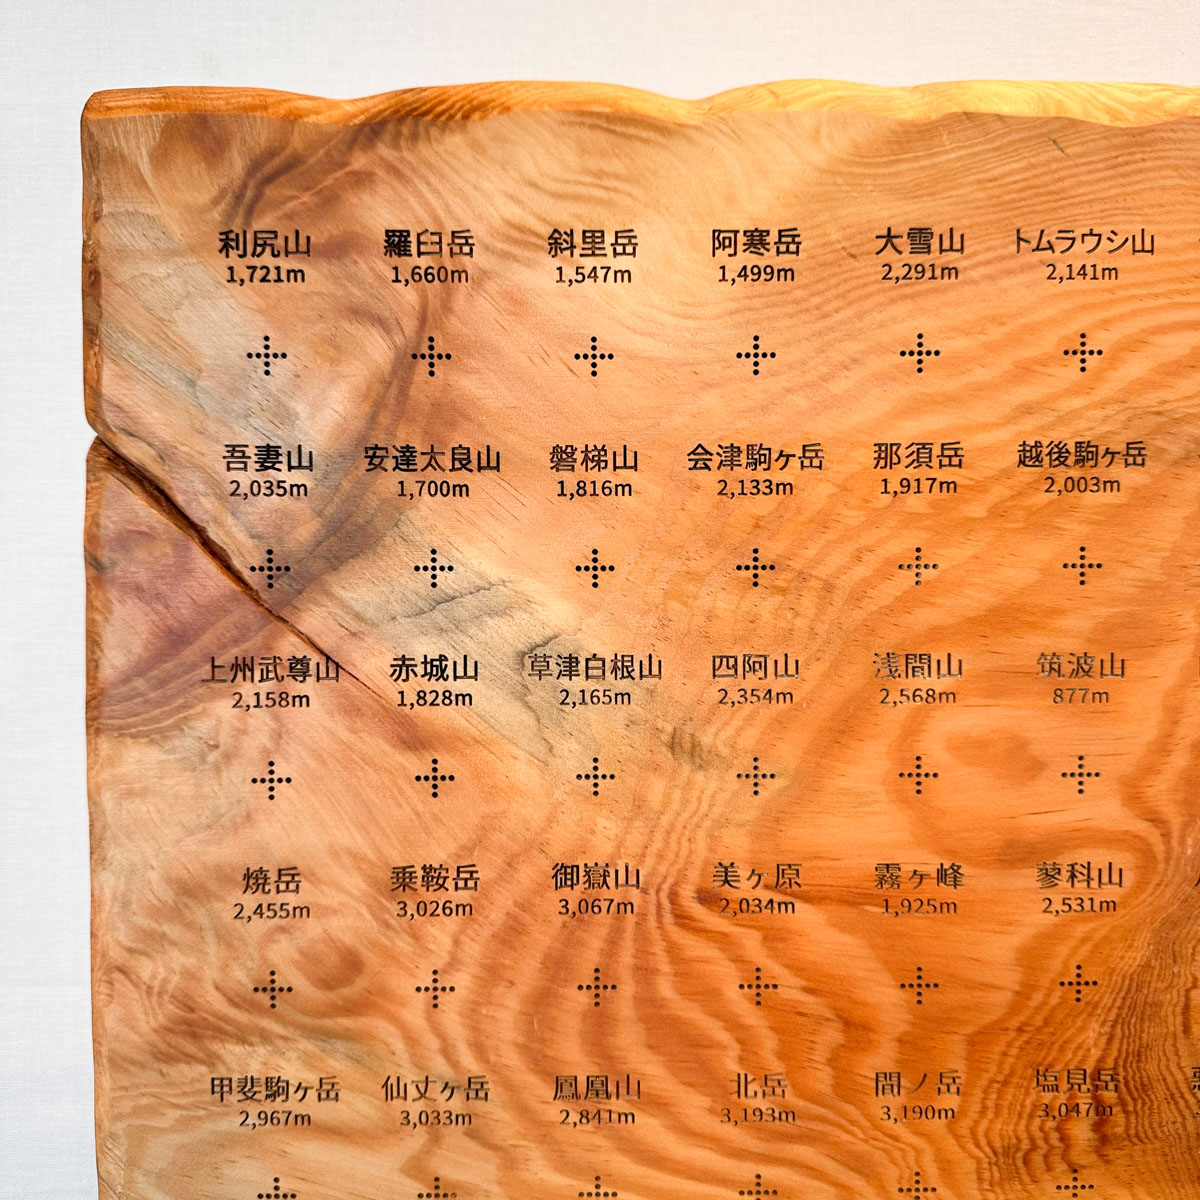 利尻山 羅臼岳 斜里岳 阿寒岳 大雪山 トムラウシ山
1,721m 1,660m 1,547m 1,499m 2,291m 2,141m
吾妻山 安達太良山 磐梯山 会津駒ヶ岳 那須岳 越後駒ヶ岳
2,035m 1,700m 1,816m 2,133m 1,917m 2,003m
上州武尊山 赤城山 草津白根山 四阿山 浅間山 筑波山
2,158m 1,828m 2,165m 2,354m 2,568m 877m
焼岳 乗鞍岳 御嶽山 美ヶ原 霧ヶ峰 蓼科山
2,455m 3,026m 3,067m 2,034m 1,925m 2,531m
甲斐駒ヶ岳 仙丈ヶ岳 鳳凰山 北岳 間ノ岳 塩見岳
2,967m 3,033m 2,841m 3,193m 3,190m 3,047m